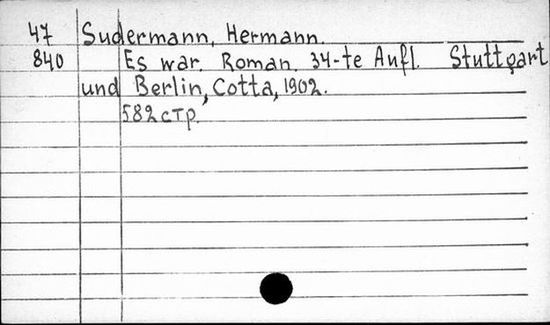 47 Sudermann, Hermann.
840 Es war. Roman. 34-te Aufl. Stuttgart
und Berlin, Cotta, 1902.
582 стр.